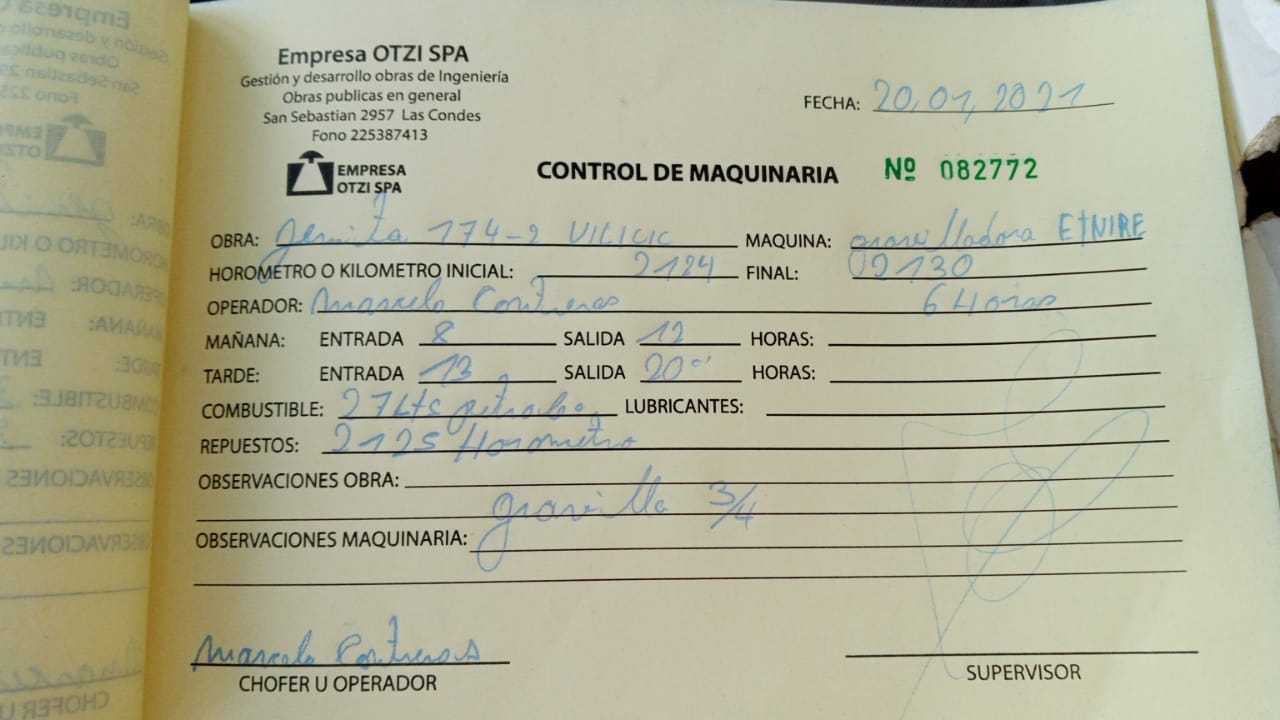 Empresa OTZI SPA
Gestión y desarrollo obras de Ingeniería
Obras publicas en general
San Sebastian 2957 Las Condes
Fono 225387413
FECHA: 20,01,2021
EMPRESA
OTZI SPA
CONTROL DE MAQUINARIA Nº 082772
OBRA: 174-2 VILICIC MAQUINA: gravilladora ETNIRE
HOROMETRO O KILOMETRO INICIAL: 2124 FINAL: 02130
OPERADOR: Marcelo Contreras 6 Horas
MAÑANA: ENTRADA 8 SALIDA 12 HORAS:
TARDE: ENTRADA 13 SALIDA 20°° HORAS:
COMBUSTIBLE: 27 Lts petroleo LUBRICANTES:
REPUESTOS: 2125 Horometro
OBSERVACIONES OBRA:
gravilla 3/4
OBSERVACIONES MAQUINARIA:
Marcelo Contreras
CHOFER U OPERADOR SUPERVISOR